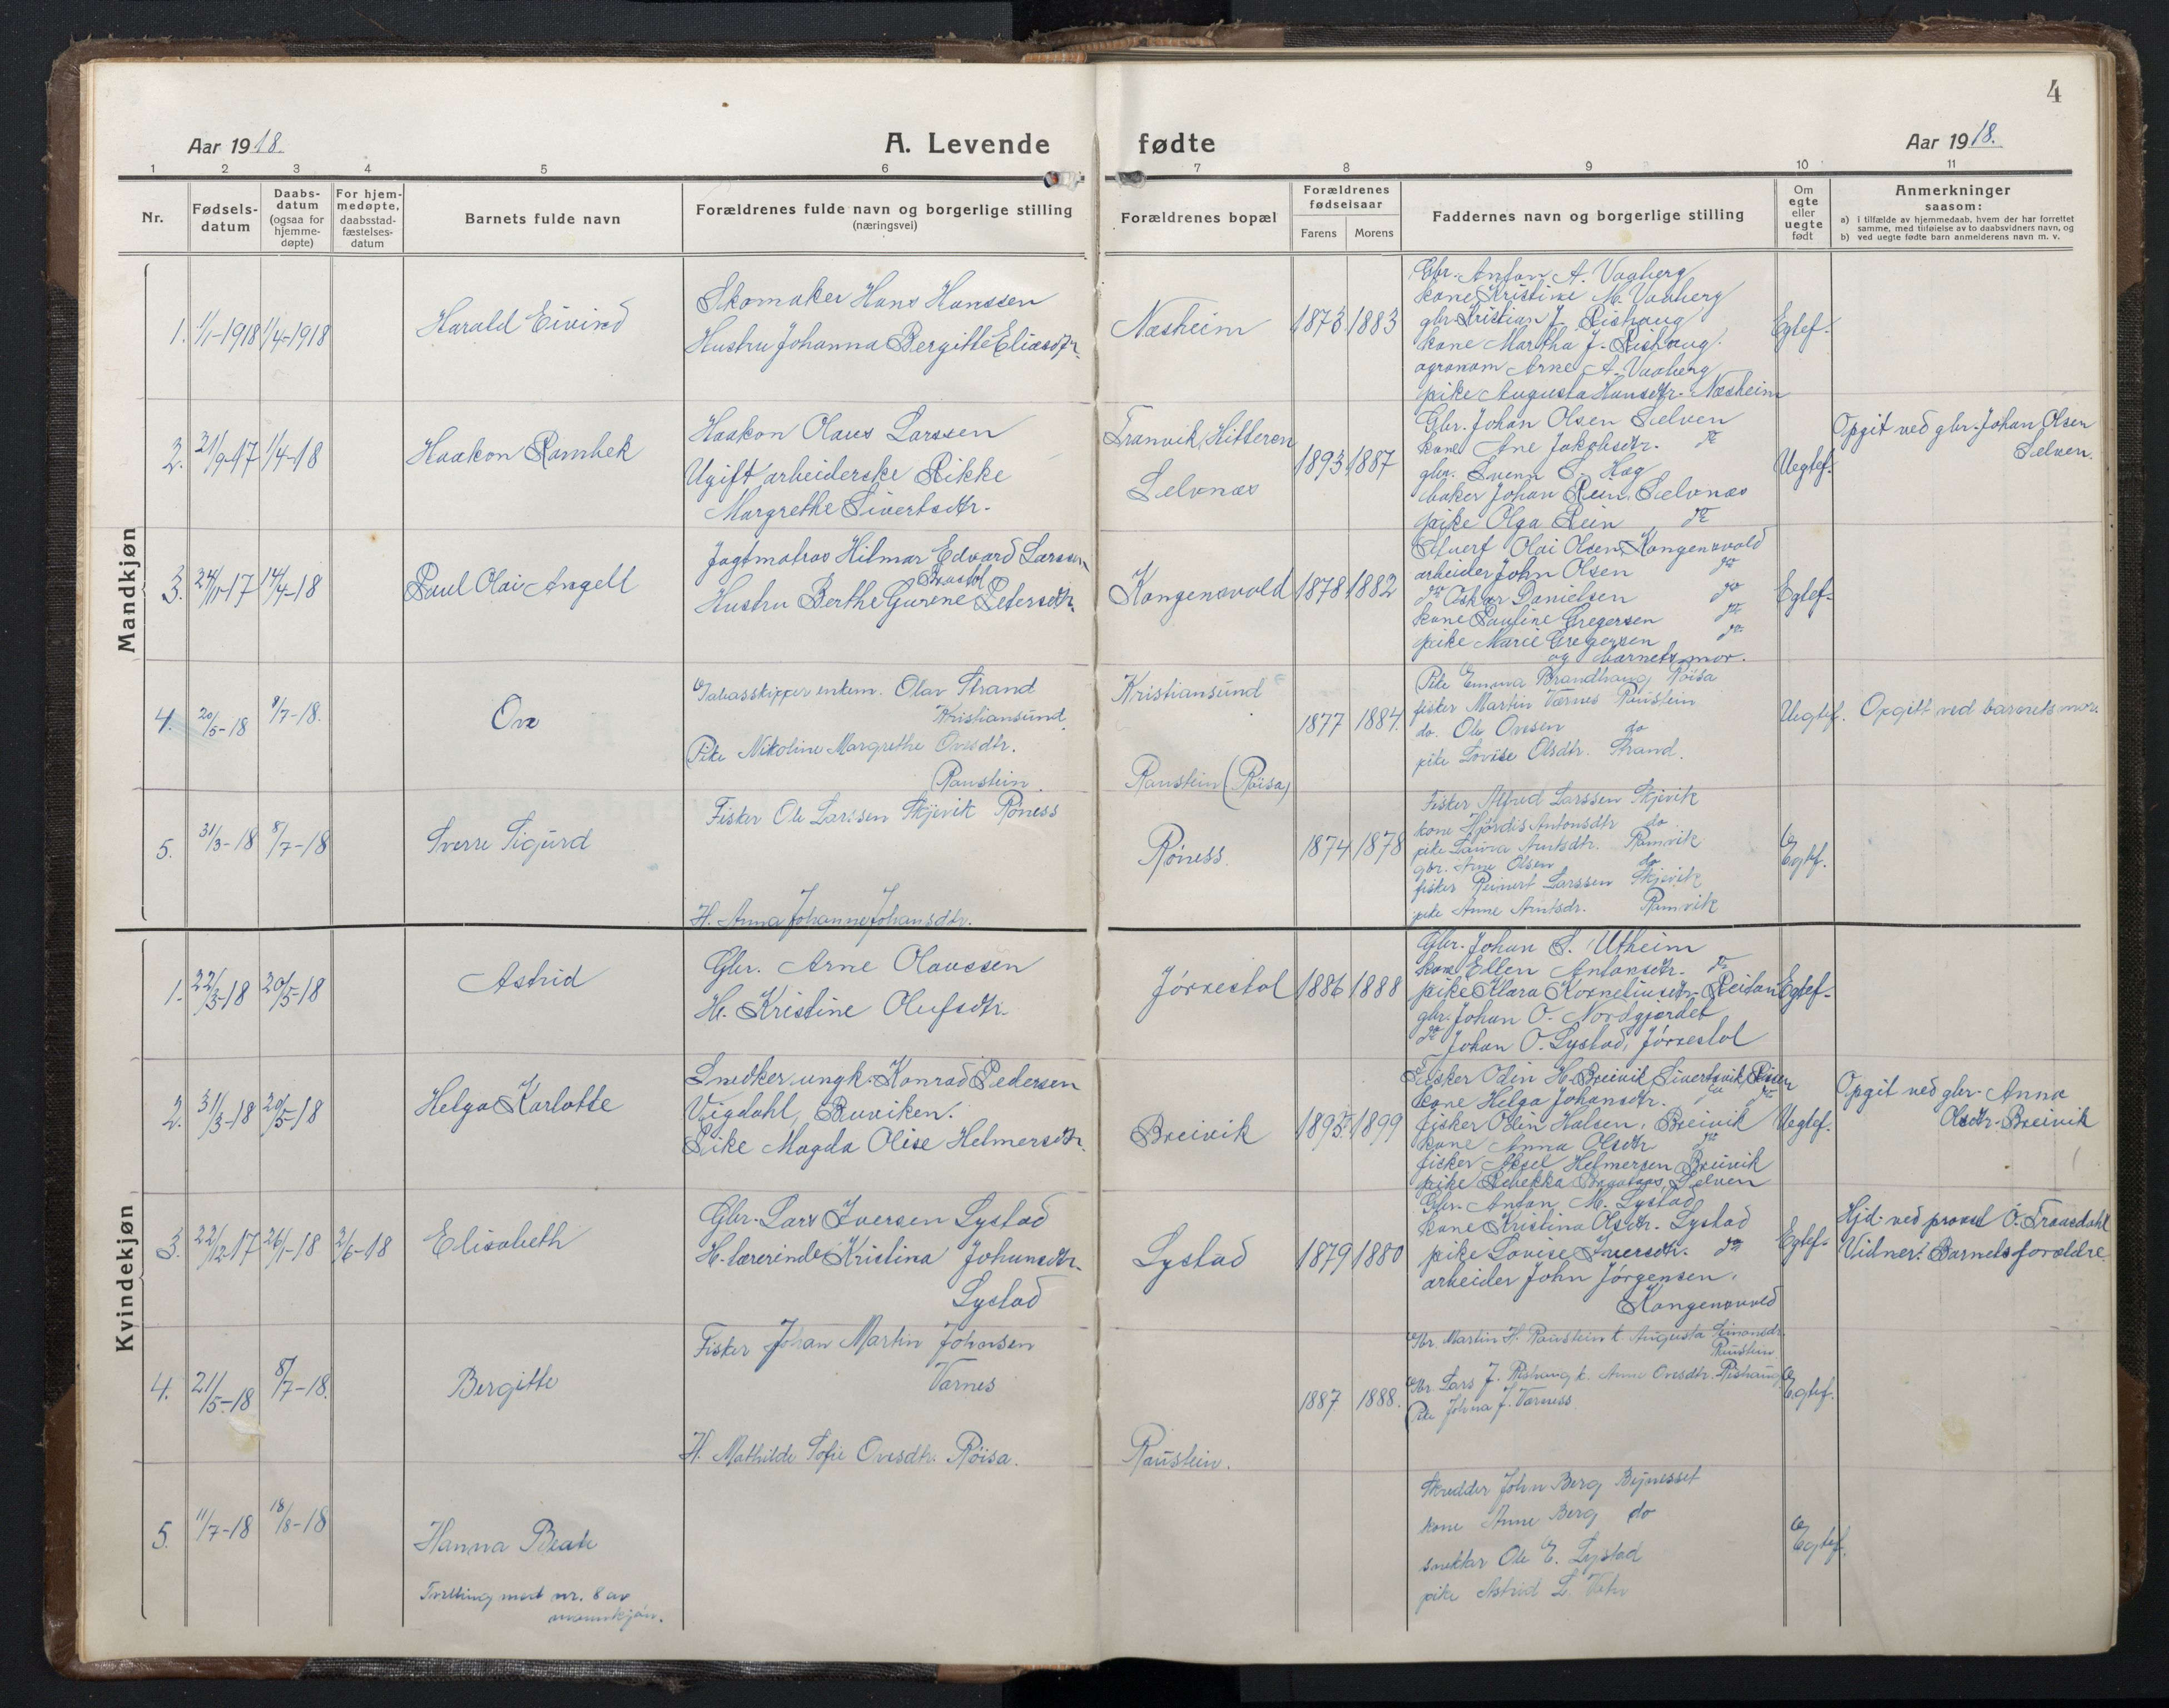 4
Aar 1918. A. Levende fødte Aar 1918.
1 2 3 4 5 6 7 8 9 10 11
Nr.
Fødsels-
datum
Daabs-
datum
(ogsaa for
hjemme-
døpte)
For hjem-
medøpte,
daabsstad-
fæstelses-
datum
Barnets fulde navn
Forældrenes fulde navn og borgerlige stilling
(næringsvei)
Forældrenes bopæl
Forældrenes
fødselsaar
Farens Morens
Faddernes navn og borgerlige stilling
Om
egte
eller
uegte
født
Anmerkninger
saasom:
a) i tilfælde av hjemmedaab, hvem der har forrettet
samme, med tilføielse av to daabsvidners navn, og
b) ved uegte fødte barn anmelderens navn m. v.
Mandkjøn
1. 1/1-1918 1/4-1918
Harald Eivind
Skomaker Hans Hanssen
Hustru Johanna Bergitte Eliasdtr.
Næsheim
1873 1883
Gbr. Anton A. Vaaberg
kone Kristine M. Vaaberg
gbr. Kristian J. Rishaug
kone Martha J. Rishaug
agronom Arne A. Vaaberg
pike Augusta Hansdtr. Næsheim
Egtef.
2. 21/9-17 1/4-18
Haakon Rambek
Haakon Olaus Larssen
Ugift arbeiderske Rikke
Margrethe Sivertsdtr.
Tranvik, Hitteren
Selvnæs
1893 1887
Gbr. Johan Olsen Selven
kone Ane Jakobsdtr. do
gbr. Svenn S. Hag
baker Johan Rein, Selvnæs
pike Olga Rein do
Uegtef.
Opgit ved gbr. Johan Olsen
Selven.
3. 24/11-17 14/4-18
Paul Olai Angell
Jagtmatros Hilmar Edvard Larssen
Brastøl
Hustru Berthe Gurine Petersdtr.
Kongensvold
1878 1882
Olai Olsen, Kongensvold
arbeider John Olsen do
do Oskar Danielsen do
kone Pauline Gregersen do
pike Marie Gregersen do
og barnets mor.
Egtef.
4. 20/5-18 8/7-18.
Ove
enkem. Olav Strand
Kristiansund
Pike Nikoline Margrethe Ovesdtr.
Raustein.
Kristiansund
Raustein (Røisa)
1877 1884.
Pike Emma Brandhaug Røisa
fisker Martin Varnes Raustein
do. Ole Ovesen do
pike Lovise Olsdtr. Strand.
Uegtef.
Opgitt ved barnets mor.
5. 31/3-18 8/7-18
Sverre Sigurd
Fisker Ole Larssen Skjevik Røness
H. Anna Johanne Johansdtr.
Røness.
1874 1878
Fisker Alfred Larssen Skjevik
kone Hjørdis Antonsdtr do
pike Laura Arntsdtr. Ramvik
gbr. Arne Olsen do
fisker Reinert Larssen Skjevik
pike Anne Arntsdr. Ramvik
Egtef.
Kvindekjøn
1. 22/3-18 20/5-18
Astrid
Gbr. Arne Olaussen
H. Kristine Olufsdtr.
Jørrestol
1886 1888
Gbr. Johan S. Utheim
kone Ellen Antonsdtr. do
pike Klara Korneliusdtr. Reitan
gbr. Johan O. Nordgjerdet
do Johan O. Lystad, Jørrestol
Egtef.
2. 31/3-18 20/5-18
Helga Karlotte
Snedker ungk. Konrad Pedersen
Vigdahl, Buviken.
Pike Magda Olise Helmersdtr.
Breivik
1895 1899
Fisker Odin H. Breivik, Sivertsvik, Rissen
kone Helga Johansdtr. do do
fisker Odin Halsen, Breivik
kone Anna Olsdtr do
fisker Aksel Helmersen Breivik
pike Rebekka Selven
Uegtef.
Opgit ved gbr. Anna
Olsdtr. Breivik
3. 22/12-17 26/1-18 2/6-18
Elisabeth
Gbr. Lars Iversen Lystad
H. lærerinde Kristina Johansdtr.
Lystad
Lystad
1879 1880
Gbr. Anton M. Lystad,
kone Kristina Olsdtr. Lystad
pike Lovise Iversdtr. do
arbeider John Jørgensen,
Kongensvold
Egtef.
Hjd. ved provst O. Traasdahl
Vidner: Barnets forældre
4. 21/5-18 8/7-18.
Bergitte
Fisker Johan Martin Johnsen
Varnes
H. Mathilde Sofie Ovesdtr. Røisa.
Raustein.
1887 1888.
Gbr. Martin H. Raustein k. Augusta Simonsdr.
Raustein
Gbr. Lars J. Rishaug k. Anne Ovesdtr. Rishaug
Pike Johna J. Varness
Egtef.
5. 11/7-18 18/8-18
Hanna Beate
Tvilling med nr. 8 av
mannkjøn.
Skredder John Berg Bejnesset
kone Anne Berg do
snekker Ole E. Lystad
pike Astrid L.
Egtef.